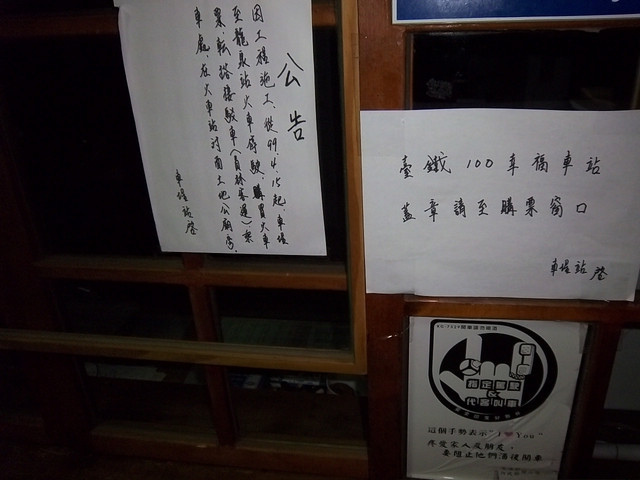 公告
因工程施工,從99.4.15起,車埕
至龍泉站火車停駛,購買火車
票,転搭接駁車(員林客運)乘
車處,在火車站対面土地公廟旁。
車埕站啓
臺鐵100幸福車站
蓋章請至購票窗口
車埕站 啓
指定駕駛
&
代客叫車
這個手勢表示"I ❤ You"
疼愛家人及朋友,
要阻止他們酒後開車